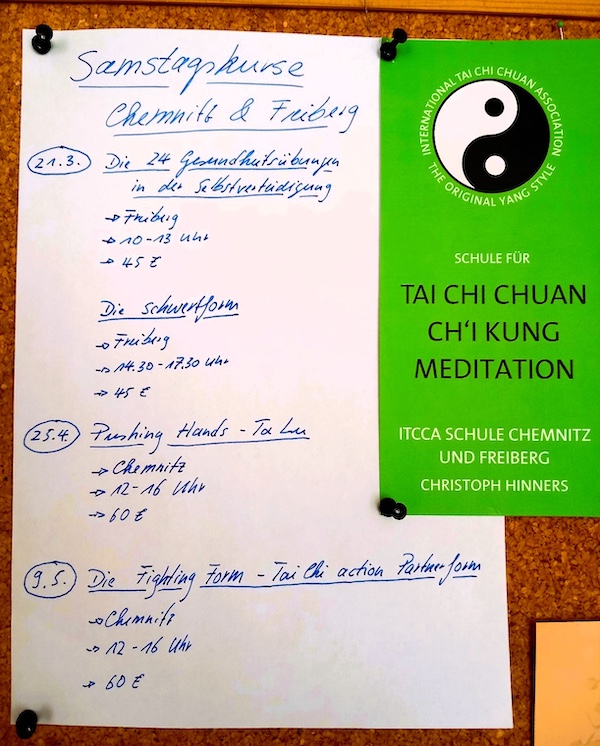 Samstagskurse
Chemnitz & Freiberg
21.3. Die 24 Gesundheitsübungen
in der Selbstverteidigung
→ Freiberg
→ 10-13 Uhr
→ 45 €
Die Schwertform
→ Freiberg
→ 14.30-17.30 Uhr
→ 45 €
25.4. Pushing Hands - Ta Lu
→ Chemnitz
→ 12-16 Uhr
→ 60 €
9.5. Die Fighting Form - Tai Chi action Partnerform
→ Chemnitz
→ 12-16 Uhr
→ 60 €
INTERNATIONAL TAI CHI CHUAN ASSOCIATION
THE ORIGINAL YANG STYLE
SCHULE FÜR
TAI CHI CHUAN
CH'I KUNG
MEDITATION
ITCCA SCHULE CHEMNITZ
UND FREIBERG
CHRISTOPH HINNERS